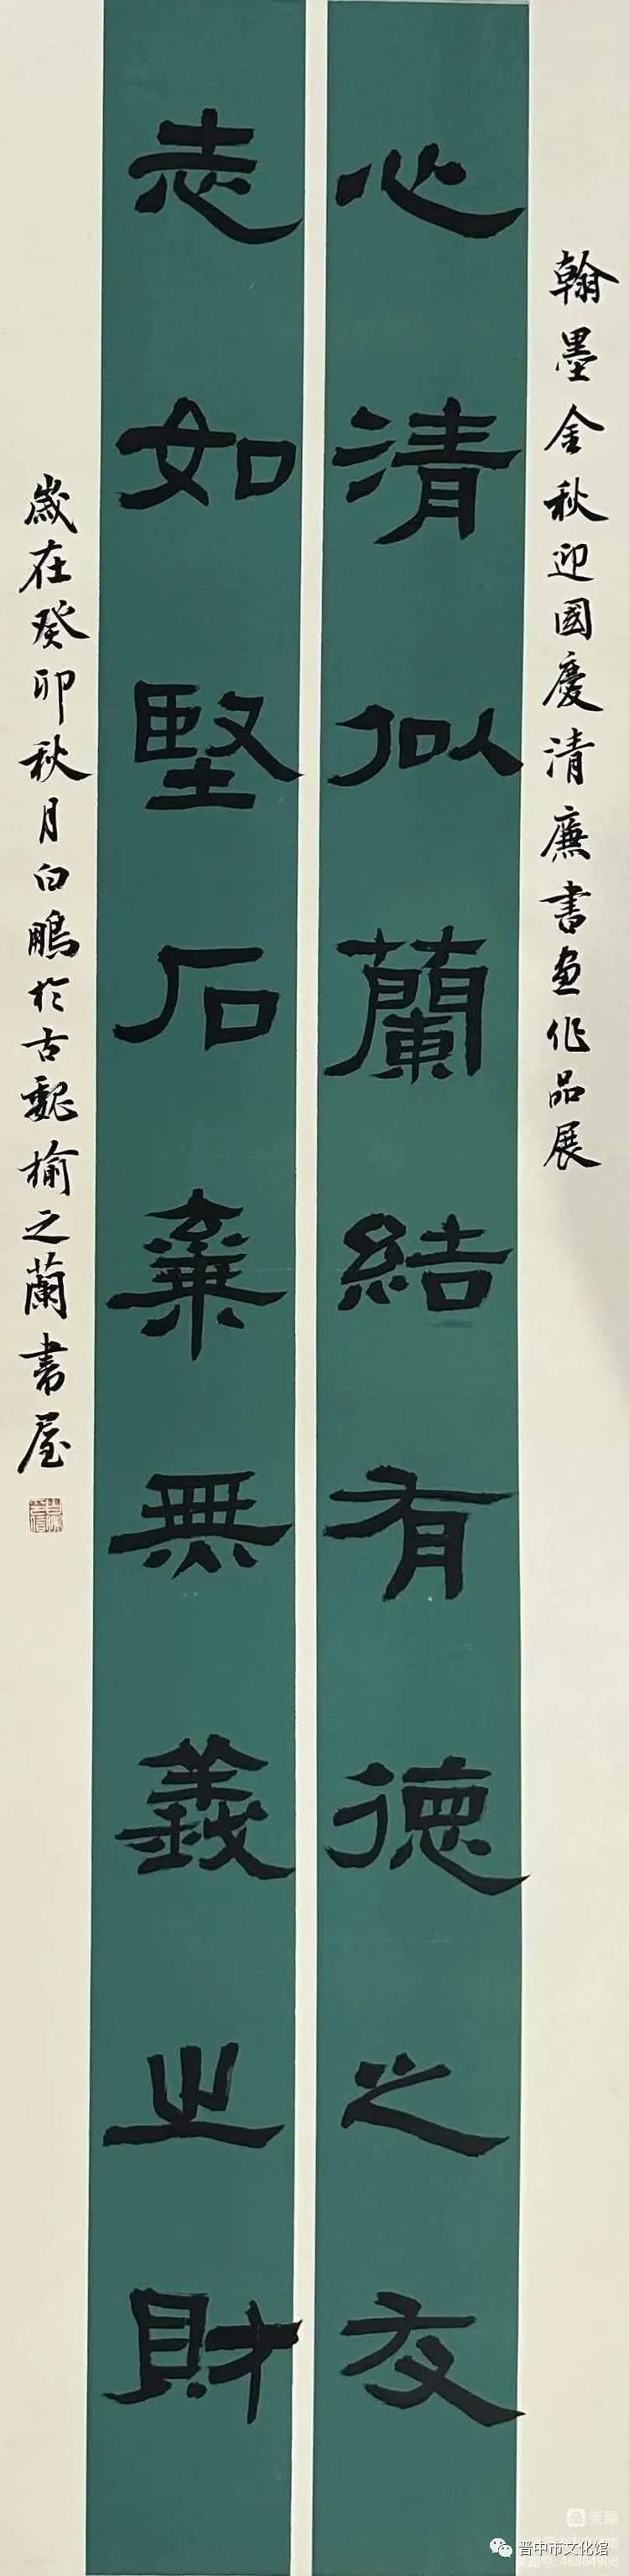 翰墨金秋迎國慶清廉書畫作品展
心清似蘭結有德之友
志如堅石棄無義之財
歲在癸卯秋月白鵬於古魏榆之蘭書屋
美篇
晋中市文化馆